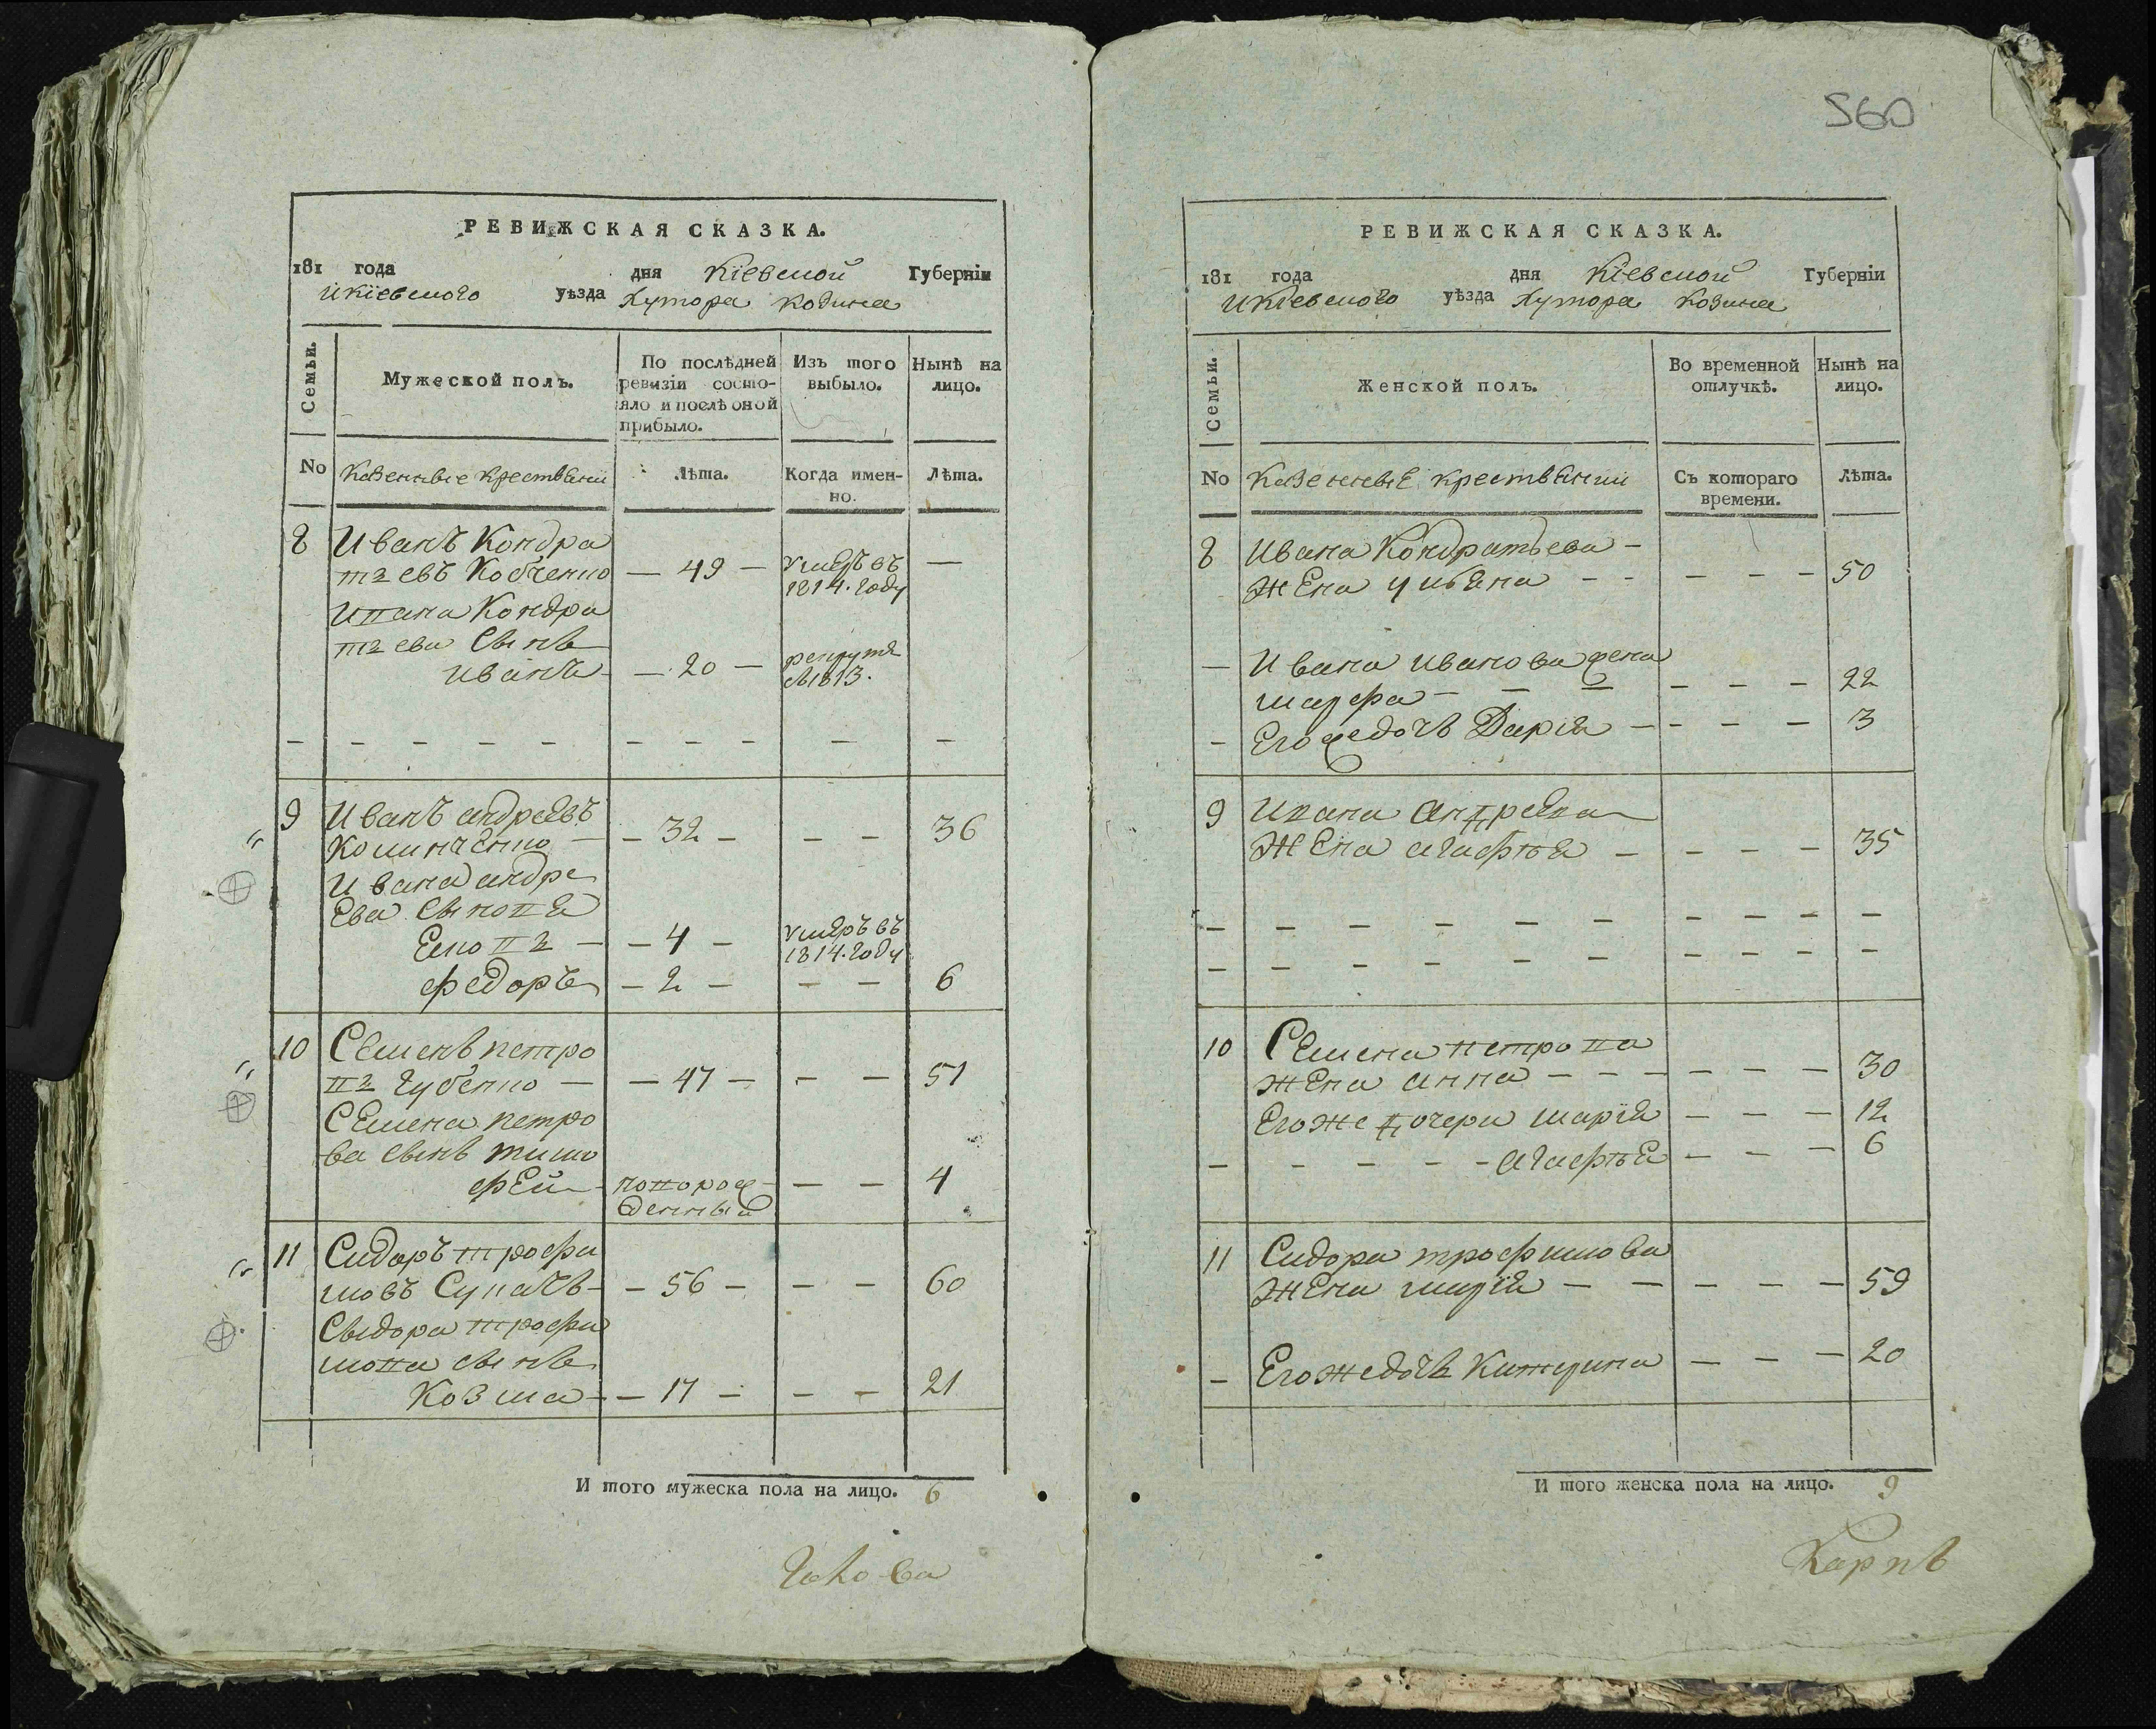 РЕВИЖСКАЯ СКАЗКА.
181 года дня Кіевской Губерніи
Икіевского уѣзда Хутора Козина
Семьи.
Мужеской полъ.
По послѣдней ревизіи состо-
яло и послѣ оной
прибыло.
Изъ того
выбыло.
Нынѣ на
лицо.
No
Казенные крестьяни
Лѣта.
Когда имен-
но.
Лѣта.
8 Иванъ Кондра
тъевъ Кобченко — 49 — умеръ въ —
1814. году
Ивана Кондра
тъева Сынъ
Иванъ — 20 — рекрутъ
1813.
9 Иванъ андреевъ
— 32 — — — 36
Ивана андре
Ева Сыновя
— 4 — умеръ въ
1814. году
федоръ — 2 — — — 6
10 Семенъ петро
въ Губенко — — 47 — — — 51
Семена петро
ва Сынъ тимо
фей новорож — — 4
денный
11 Сидоръ трофи
мовъ Сукачъ — — 56 — — — 60
Сыдора трофи
мова сынъ
Козма — — 17 — — — 21
И того мужеска пола на лицо. 6
560
РЕВИЖСКАЯ СКАЗКА.
181 года дня Кіевской Губерніи
Икіевского уѣзда Хутора Козина
Семьи.
Женской полъ.
Во временной
отлучкѣ.
Нынѣ на
лицо.
No
Казенные крестьянии
Съ котораго
времени.
Лѣта.
8 Ивана Кондратьева —
жена улияна — — — — — 50
— Ивана Иванова жена
— — — — — — 22
— Его ждочь Дария — — — — 3
9 Ивана Андреева
жена агафия — — — — 35
10 Семена петрова
жена анна — — — — — — 30
Егоже дочери мария — — — 12
— — — — — — агафия — — — 6
11 Сидора трофимова
жена мария — — — — — 59
— Егождочь Катерина — — — 20
И того женска пола на лицо. 9
Карпъ